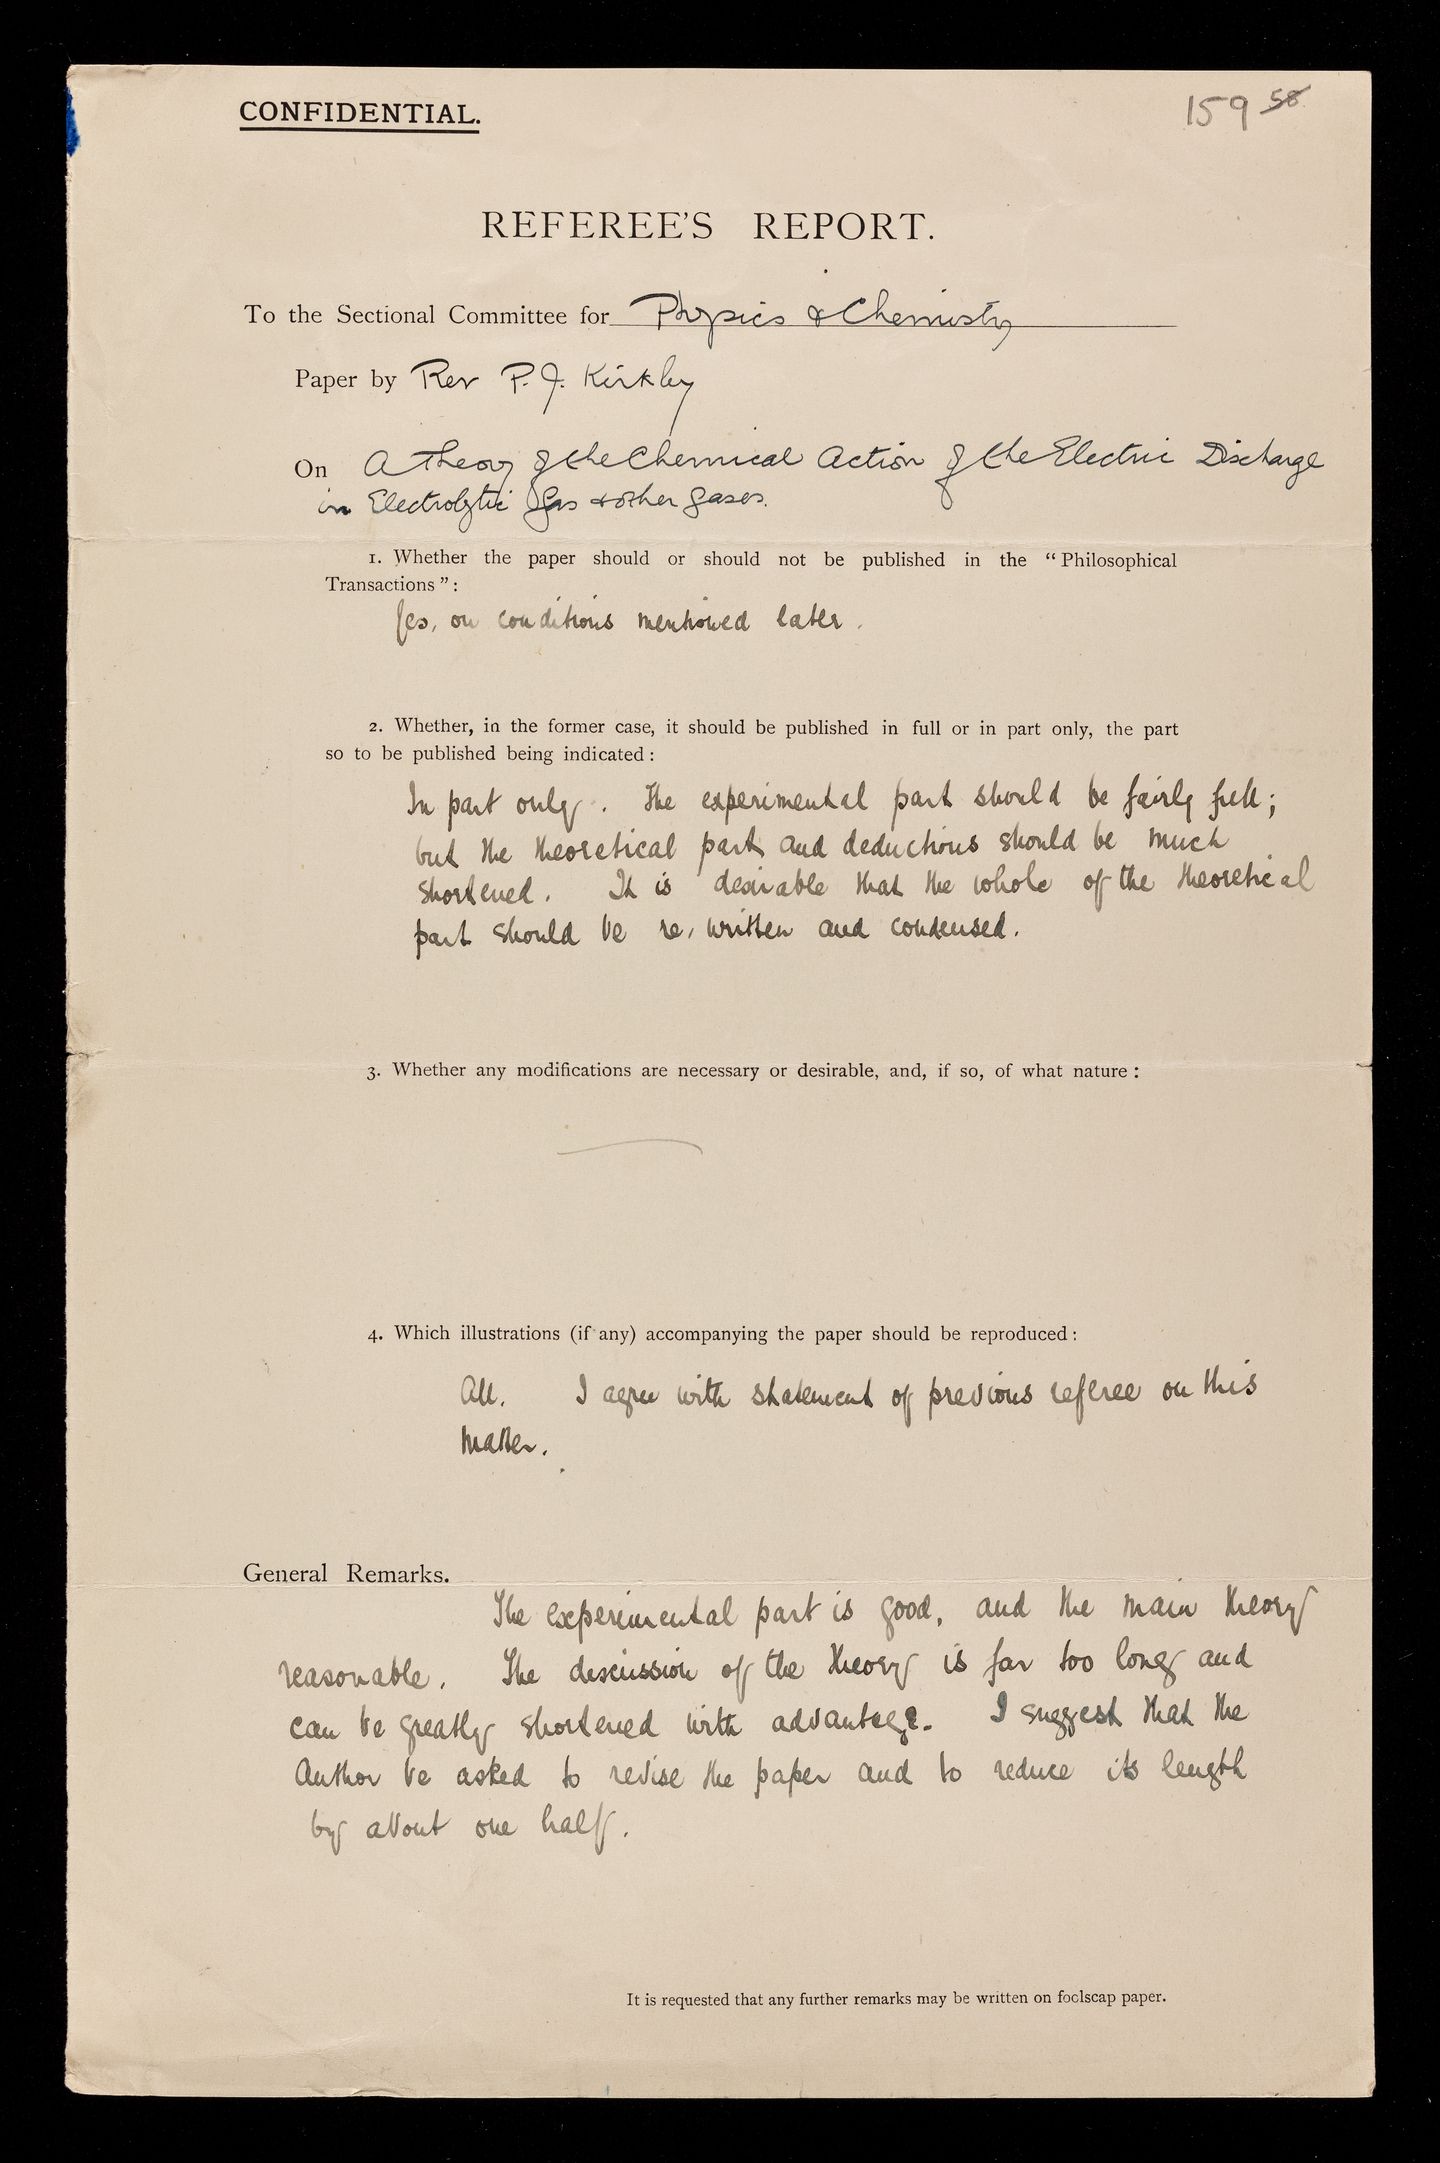 CONFIDENTIAL.
159 58
REFEREE'S REPORT.
To the Sectional Committee for Physics & Chemistry
Paper by Rev P. J. Kirkby
On A Theory of the Chemical Action of the Electric Discharge
in Electrolytic Gas & other gases.
1. Whether the paper should or should not be published in the "Philosophical
Transactions":
Yes, on conditions mentioned later.
2. Whether, in the former case, it should be published in full or in part only, the part
so to be published being indicated:
In part only. The experimental part should be fairly full;
but the theoretical part and deductions should be much
shortened. It is desirable that the whole of the theoretical
part should be re-written and condensed.
3. Whether any modifications are necessary or desirable, and, if so, of what nature:
4. Which illustrations (if any) accompanying the paper should be reproduced:
All. I agree with statement of previous referee on this
matter.
General Remarks.
The experimental part is good, and the main theory
reasonable. The discussion of the theory is far too long and
can be greatly shortened with advantage. I suggest that the
Author be asked to revise the paper and to reduce its length
by about one half.
It is requested that any further remarks may be written on foolscap paper.